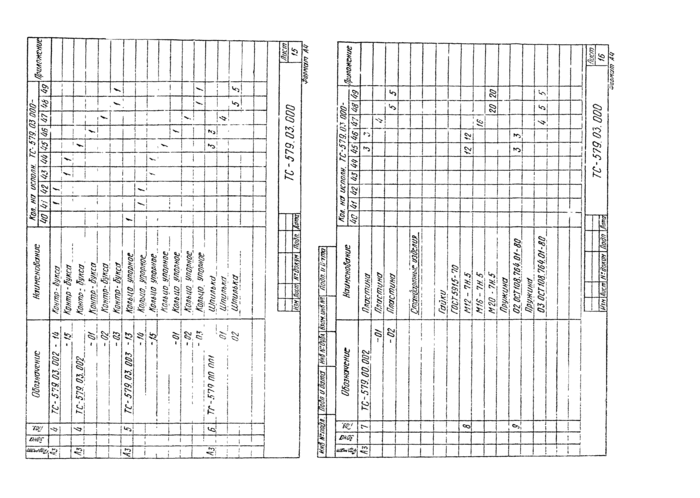 Формат Зона Поз. Обозначение Наименование Кол. на исполн. ТС-579.03.000- Примечание
40 41 42 43 44 45 46 47 48 49
А3 4 ТС-579.03.002 -14 Контр-букса 1 1
-15 Контр-букса 1 1
А3 4 ТС-579.03.002 Контр-букса 1
-01 Контр-букса 1
-02 Контр-букса 1
-03 Контр-букса 1 1
А3 5 ТС-579.03.003 -13 Кольцо упорное 1
-14 Кольцо упорное 1 1
-15 Кольцо упорное 1 1
Кольцо упорное 1
-01 Кольцо упорное 1
-02 Кольцо упорное 1
-03 Кольцо упорное 1 1
А3 6 ТГ-579.00.001 Шпилька 3 3
01 Шпилька 4
02 Шпилька 5 5
Изм Лист № докум. Подп. Дата ТС-579.03.000 Лист 15
Формат А4
Инв № подл. Подп и дата Взам инв № Инв № дубл Подп и дата
Обозначение Наименование Кол. на исполн. ТС-579.03.000- Примечание
40 41 42 43 44 45 46 47 48 49
А3 7 ТС-579.00.002 Пластина 3 3
-01 Пластина 4
-02 Пластина 5 5
Стандартные изделия
Гайки
ГОСТ 5915-70
8 М12-7Н.5 12 12
М16-7Н.5 16
М20-7Н.5 20 20
Пружина
9 02 ОСТ108.764.01-80 3 3
Пружина
03 ОСТ108.764.01-80 4 5 5
Изм Лист № докум. Подп. Дата ТС-579.03.000 Лист 16
Формат А4